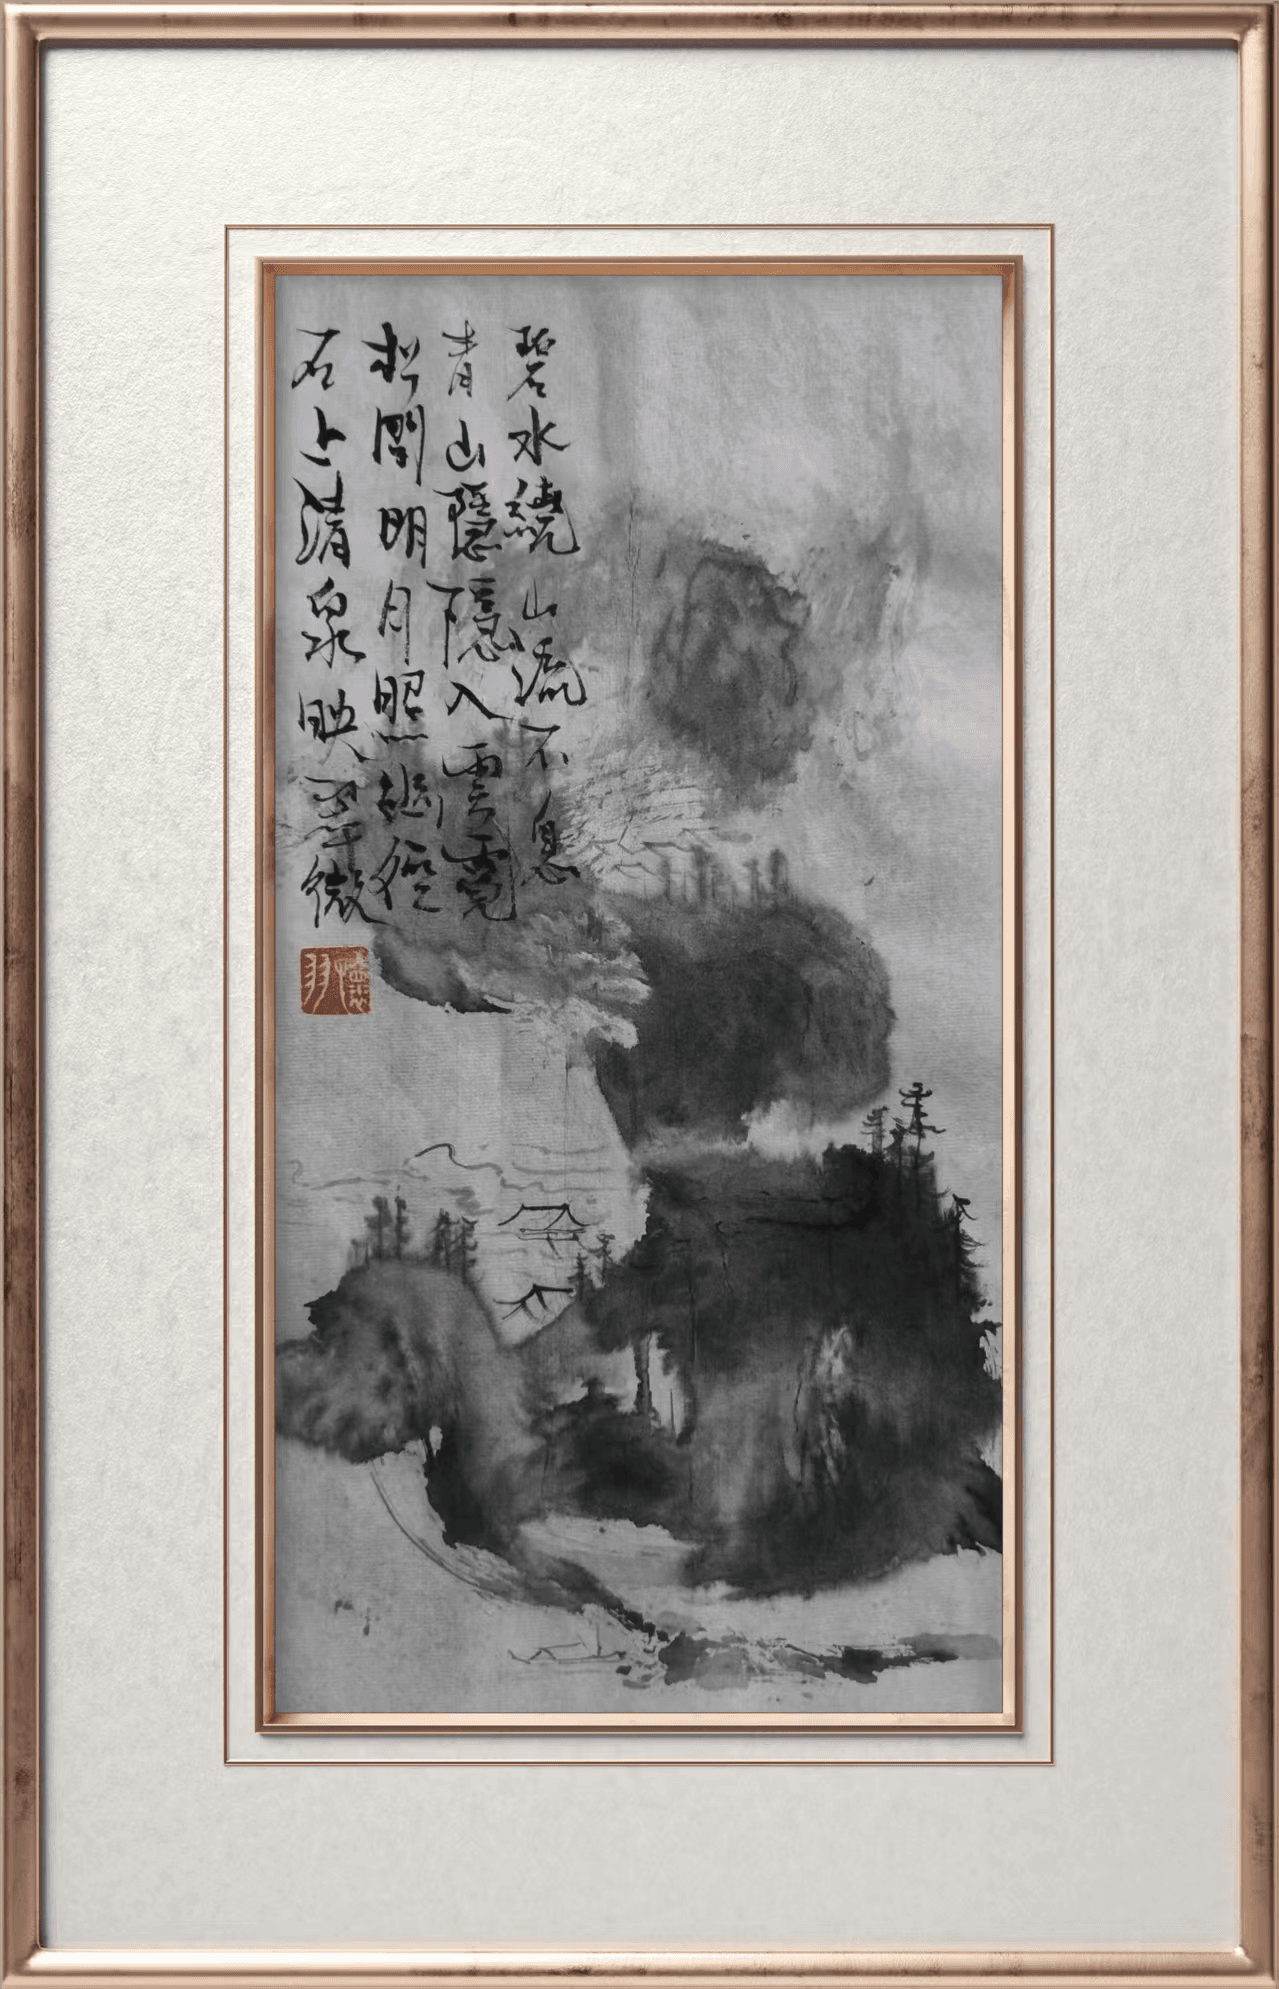 碧水繞山流不息
青山隱隱入雲霓
松間明月照幽徑
石上清泉映翠微